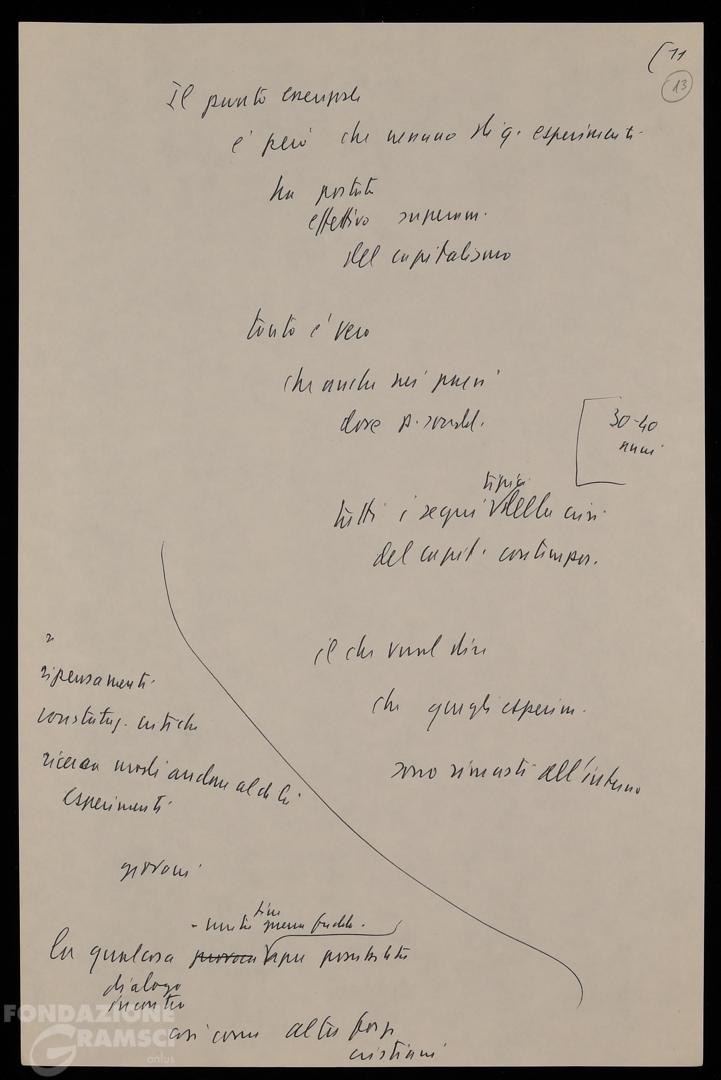 (11
13
Il punto essenziale
è però che nessuno di q. esperimenti
ha portato
effettivo superam.
del capitalismo
tanto è vero
che anche nei paesi
dove s.
30-40
anni
tipici
tutti i segni della crisi
del capit. contempor.
il che vuol dire
che quegli esperim.
sono rimasti all'interno
ripensamenti
critiche
ricerca modi andare al di là
esperimenti
giovani
fine guerra fredda.
qualcosa apre possibilità
dialogo
incontro
così come altre forze
cristiani
FONDAZIONE
GRAMSCI
onlus